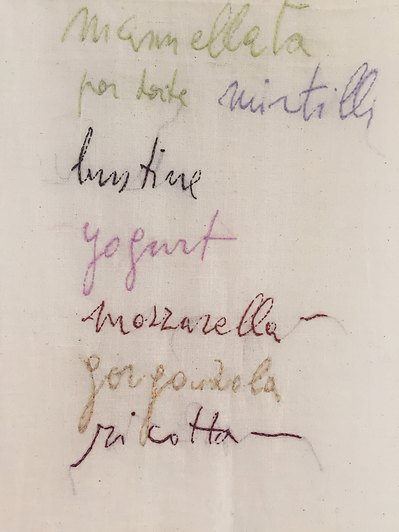 marmellata
per torte mirtilli
bustine
yogurt
mozzarella
gorgonzola
ricotta